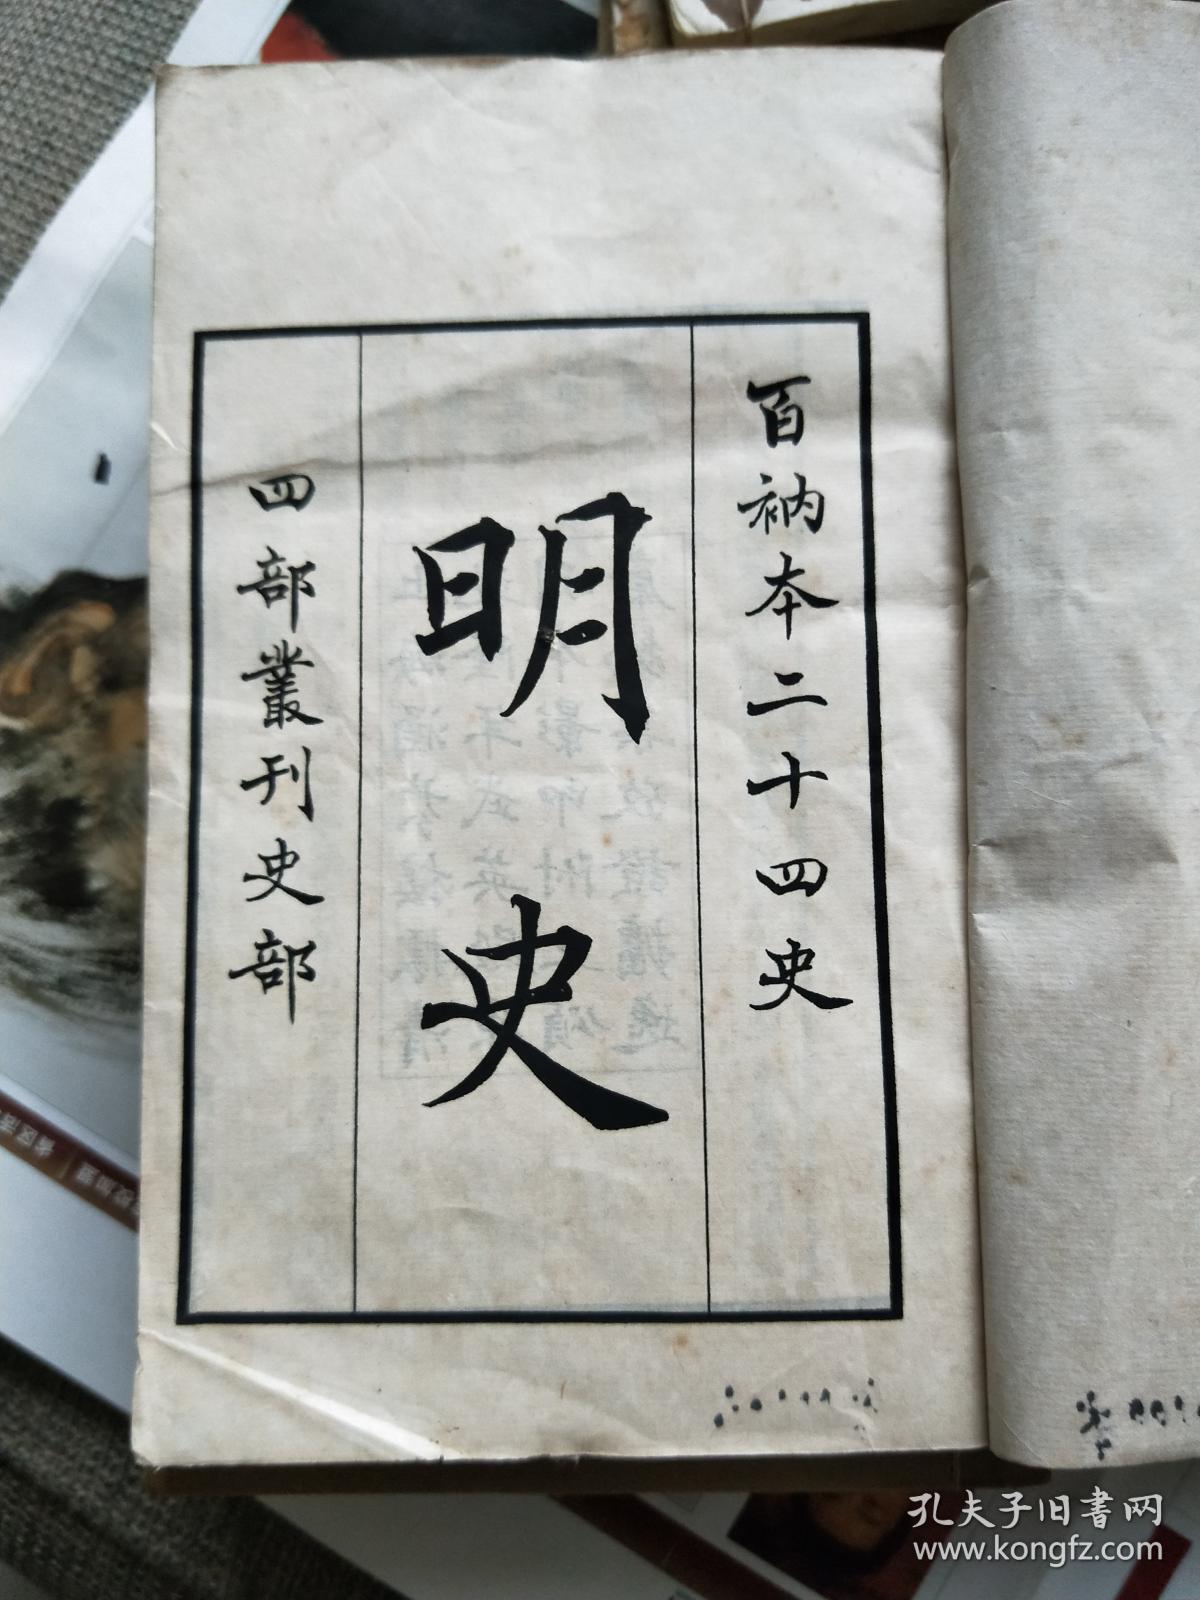 百衲本二十四史
明史
四部叢刊史部
孔夫子旧書网
www.kongfz.com